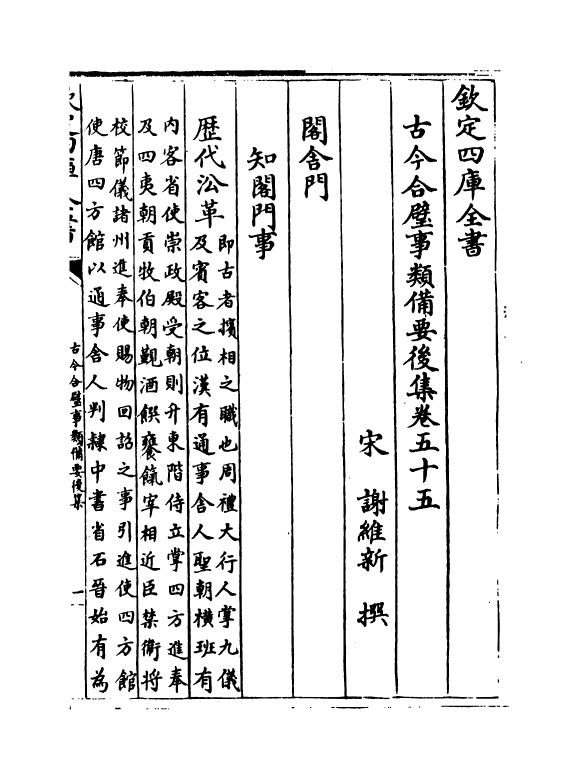 欽定四庫全書
古今合璧事類備要後集卷五十五
宋 謝維新 撰
閣舍門
知閣門事
歴代㳂革
即古者擯相之職也周禮大行人掌九儀
及賓客之位漢有通事舍人聖朝横班有
内客省使崇政殿受朝則升東階侍立掌四方進奉
及四夷朝貢牧伯朝覲酒饌饔餼宰相近臣禁衛將
校節儀諸州進奉使賜物回詔之事引進使四方館
使唐四方館以通事舍人判隸中書省石晉始有為
古今合璧事類備要後集
一